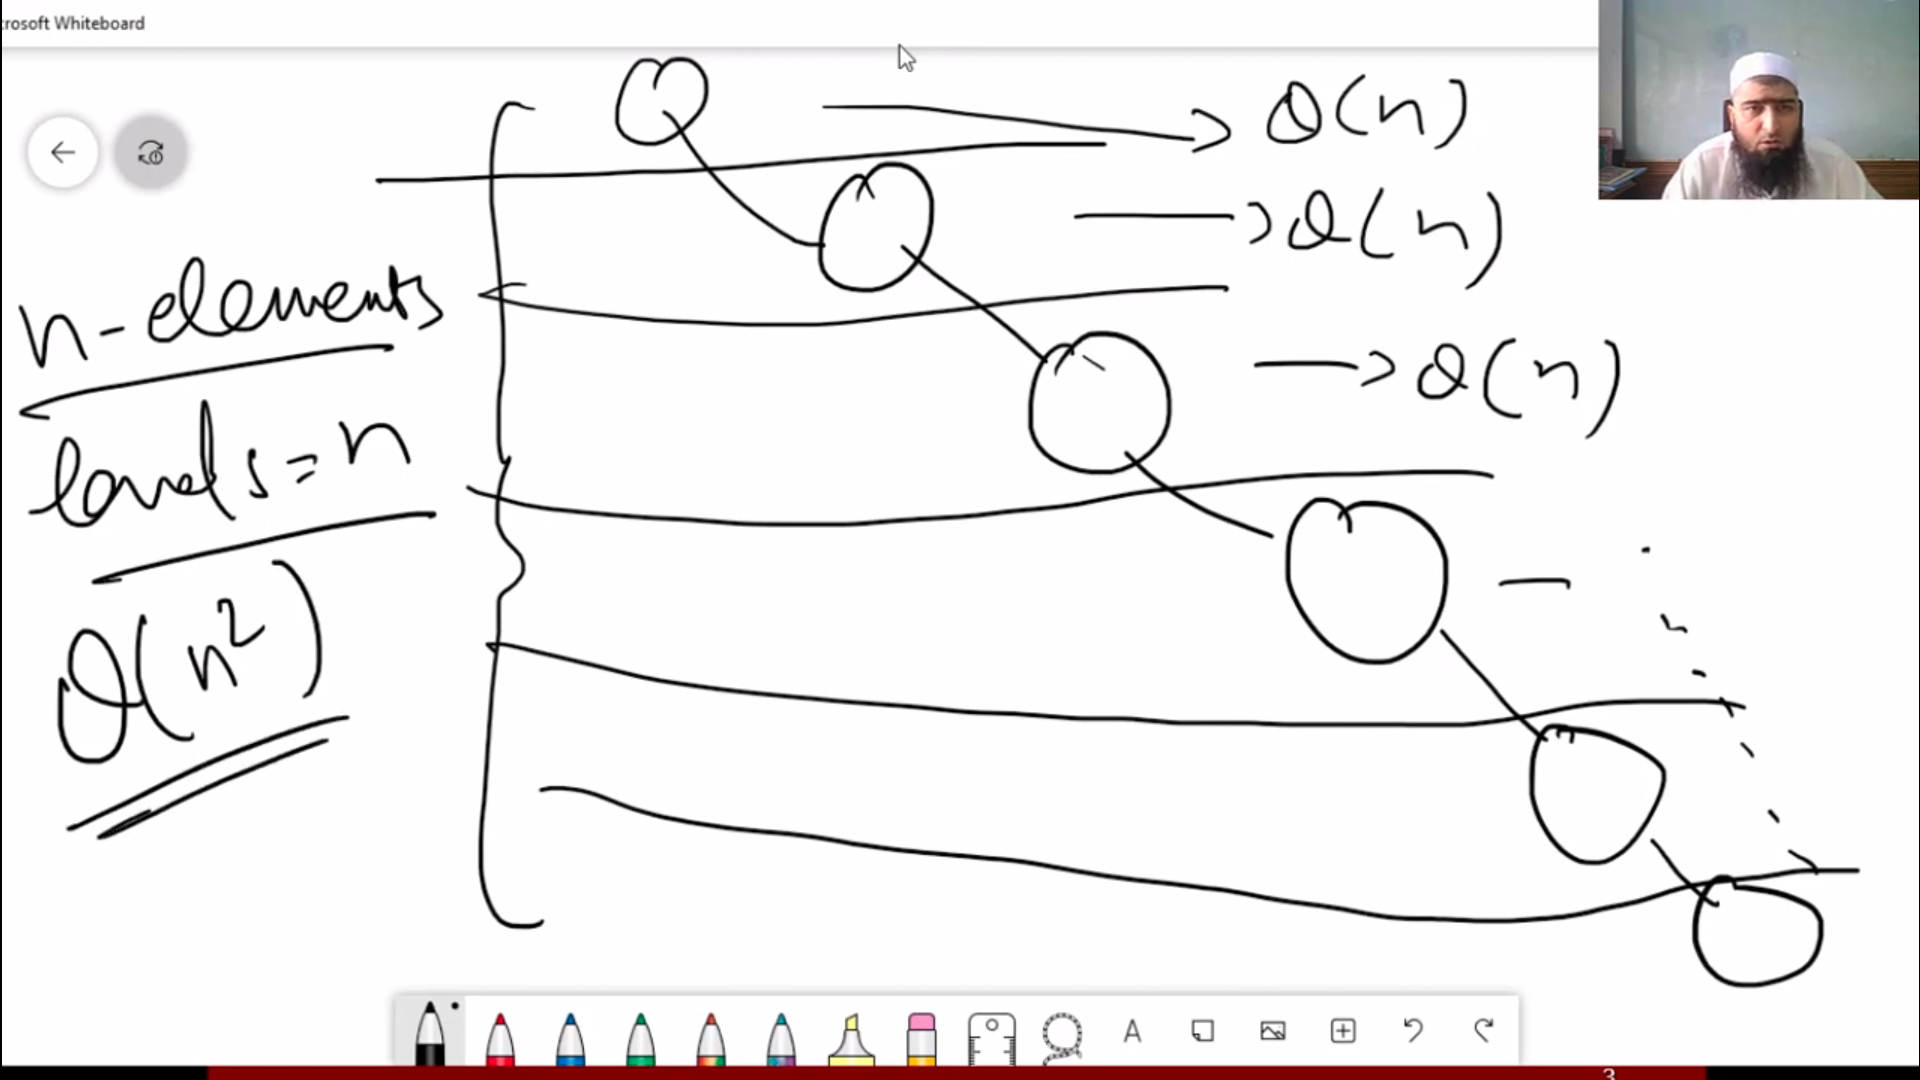 crosoft Whiteboard
θ(n)
θ(n)
n-elements
θ(n)
levels=n
θ(n²)
A
3